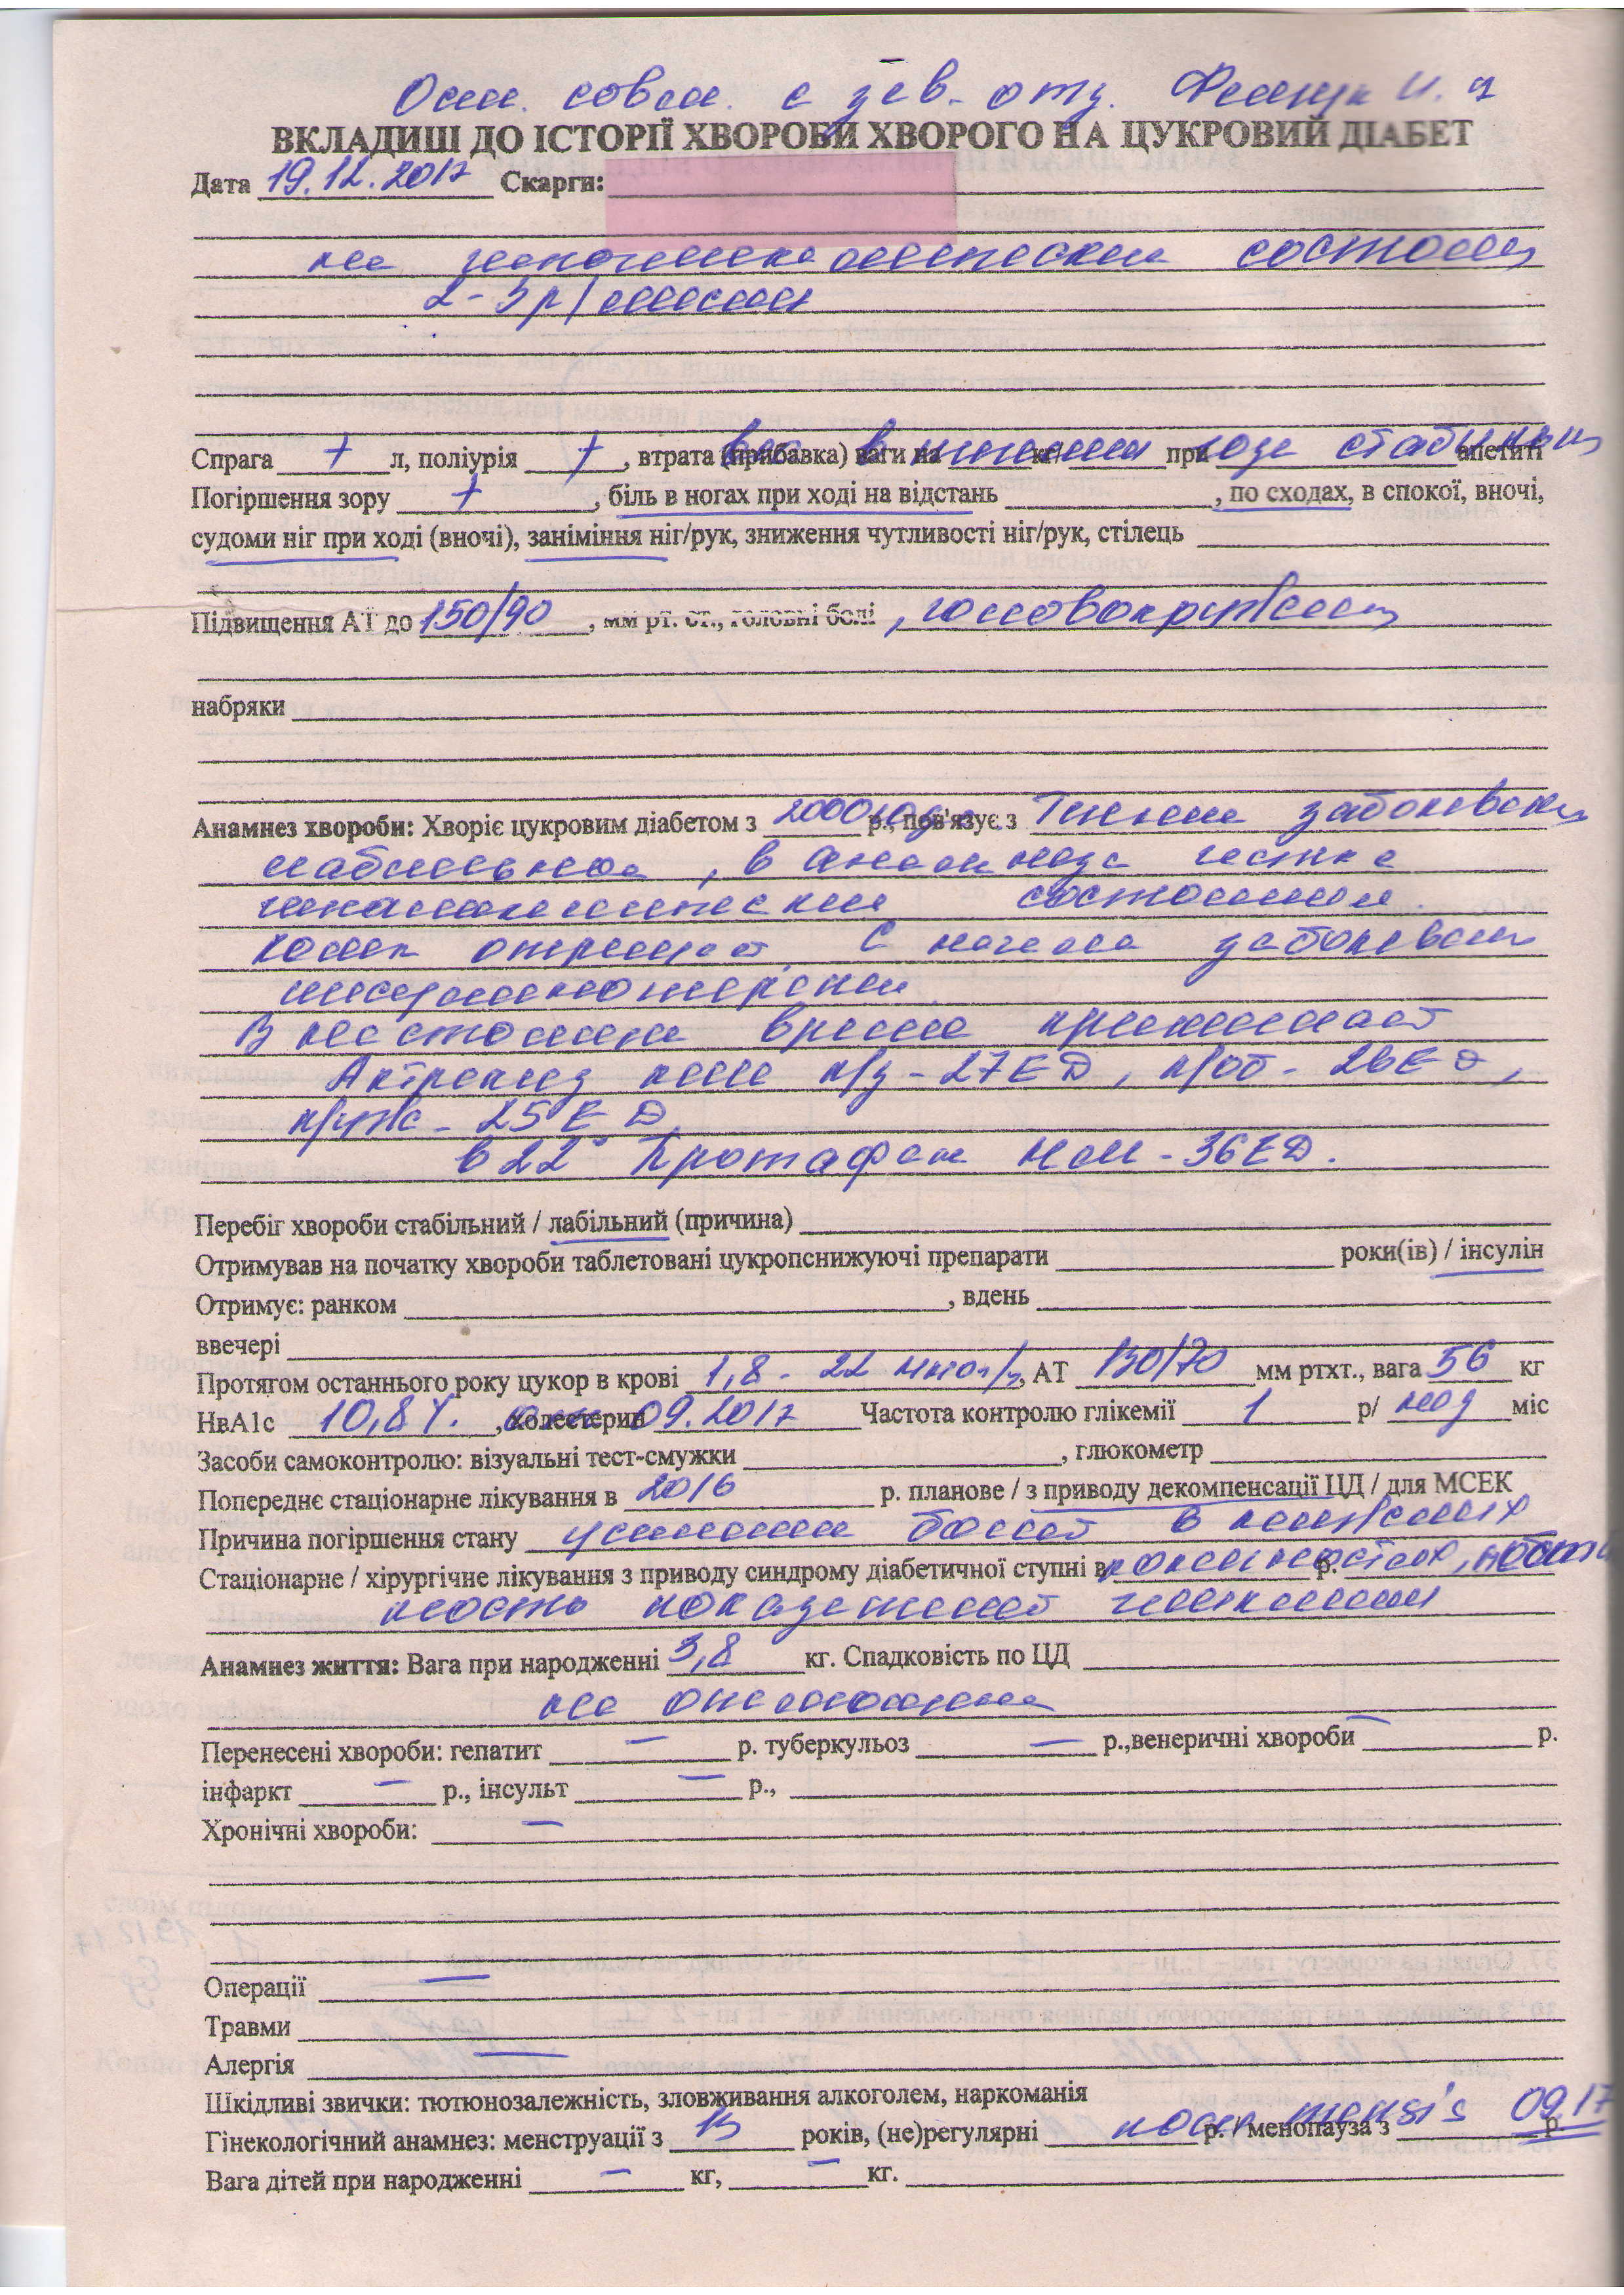 Осм. совм. с зав. отд.
ВКЛАДИШ ДО ІСТОРІЇ ХВОРОБИ ХВОРОГО НА ЦУКРОВИЙ ДІАБЕТ
Дата 19.12.2017 Скарги:
на гипогликемические состоян
2-3 р/
Спрага + л, поліурія + , втрата (прибавка) ваги на кг при апетиті
вес в течении года стабильн
Погіршення зору + , біль в ногах при ході на відстань , по сходах, в спокої, вночі,
судоми ніг при ході (вночі), заніміння ніг/рук, зниження чутливості ніг/рук, стілець
Підвищення АТ до 150/90 , мм рт. ст., головні болі , головокружен
набряки
Анамнез хвороби: Хворіє цукровим діабетом з 2000 года р., пов'язує з Течение заболеван
лабильное , в анамнезе частые
гипогликемические состояния.
Комы отрицает. С начала заболеван
инсулинотерапия.
В настоящее время принимает
Актрапид нм п/з - 27 ЕД, п/об - 26 ЕД,
п/уж - 25 ЕД,
в 22° Протафан нм - 36 ЕД.
Перебіг хвороби стабільний / лабільний (причина)
Отримував на початку хвороби таблетовані цукропснижуючі препарати роки(ів) / інсулін
Отримує: ранком , вдень
ввечері
Протягом останнього року цукор в крові 1,8 - 22 ммол/л, АТ 130/70 мм ртхт., вага 56 кг
НвА1с 10,8 %. , холестерин 09.2017 Частота контролю глікемії 1 р/ міс
Засоби самоконтролю: візуальні тест-смужки , глюкометр
Попереднє стаціонарне лікування в 2016 р. планове / з приводу декомпенсації ЦД / для МСЕК
Причина погіршення стану усиление болей в нижних
Стаціонарне / хірургічне лікування з приводу синдрому діабетичної ступні в р.
конечностях,
ность показателей гликемии
Анамнез життя: Вага при народженні 3,8 кг. Спадковість по ЦД
не отягощена
Перенесені хвороби: гепатит — р. туберкульоз — р.,венеричні хвороби — р.
інфаркт — р., інсульт — р.,
Хронічні хвороби: —
Операції —
Травми
Алергія —
Шкідливі звички: тютюнозалежність, зловживання алкоголем, наркоманія
Гінекологічний анамнез: менструації з 13 років, (не)регулярні р. / менопауза з р.
посл mensis 09.17
Вага дітей при народженні — кг, — кг.